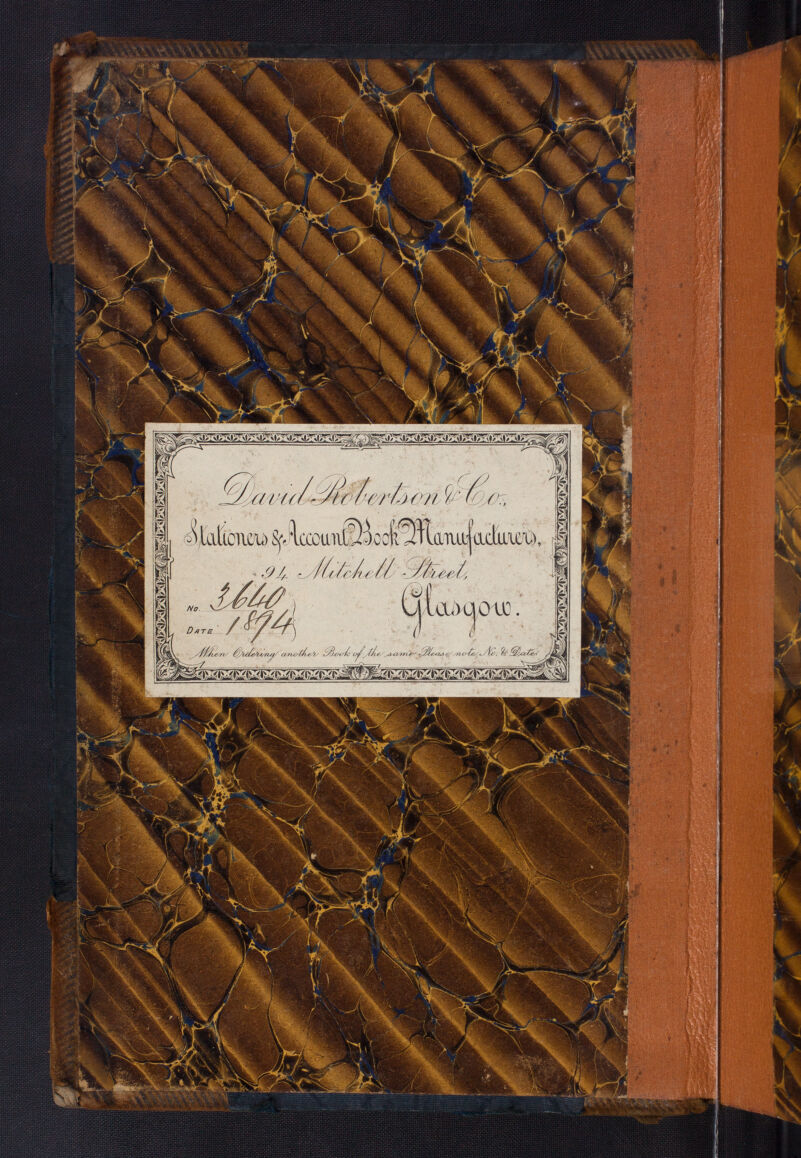 David Robertson & Co.,
Stationers & Account Book Manufacturers,
94 Mitchell Street,
Glasgow.
No. 3640
DATE 1894
When Ordering another Book of the same Please note No. & Date